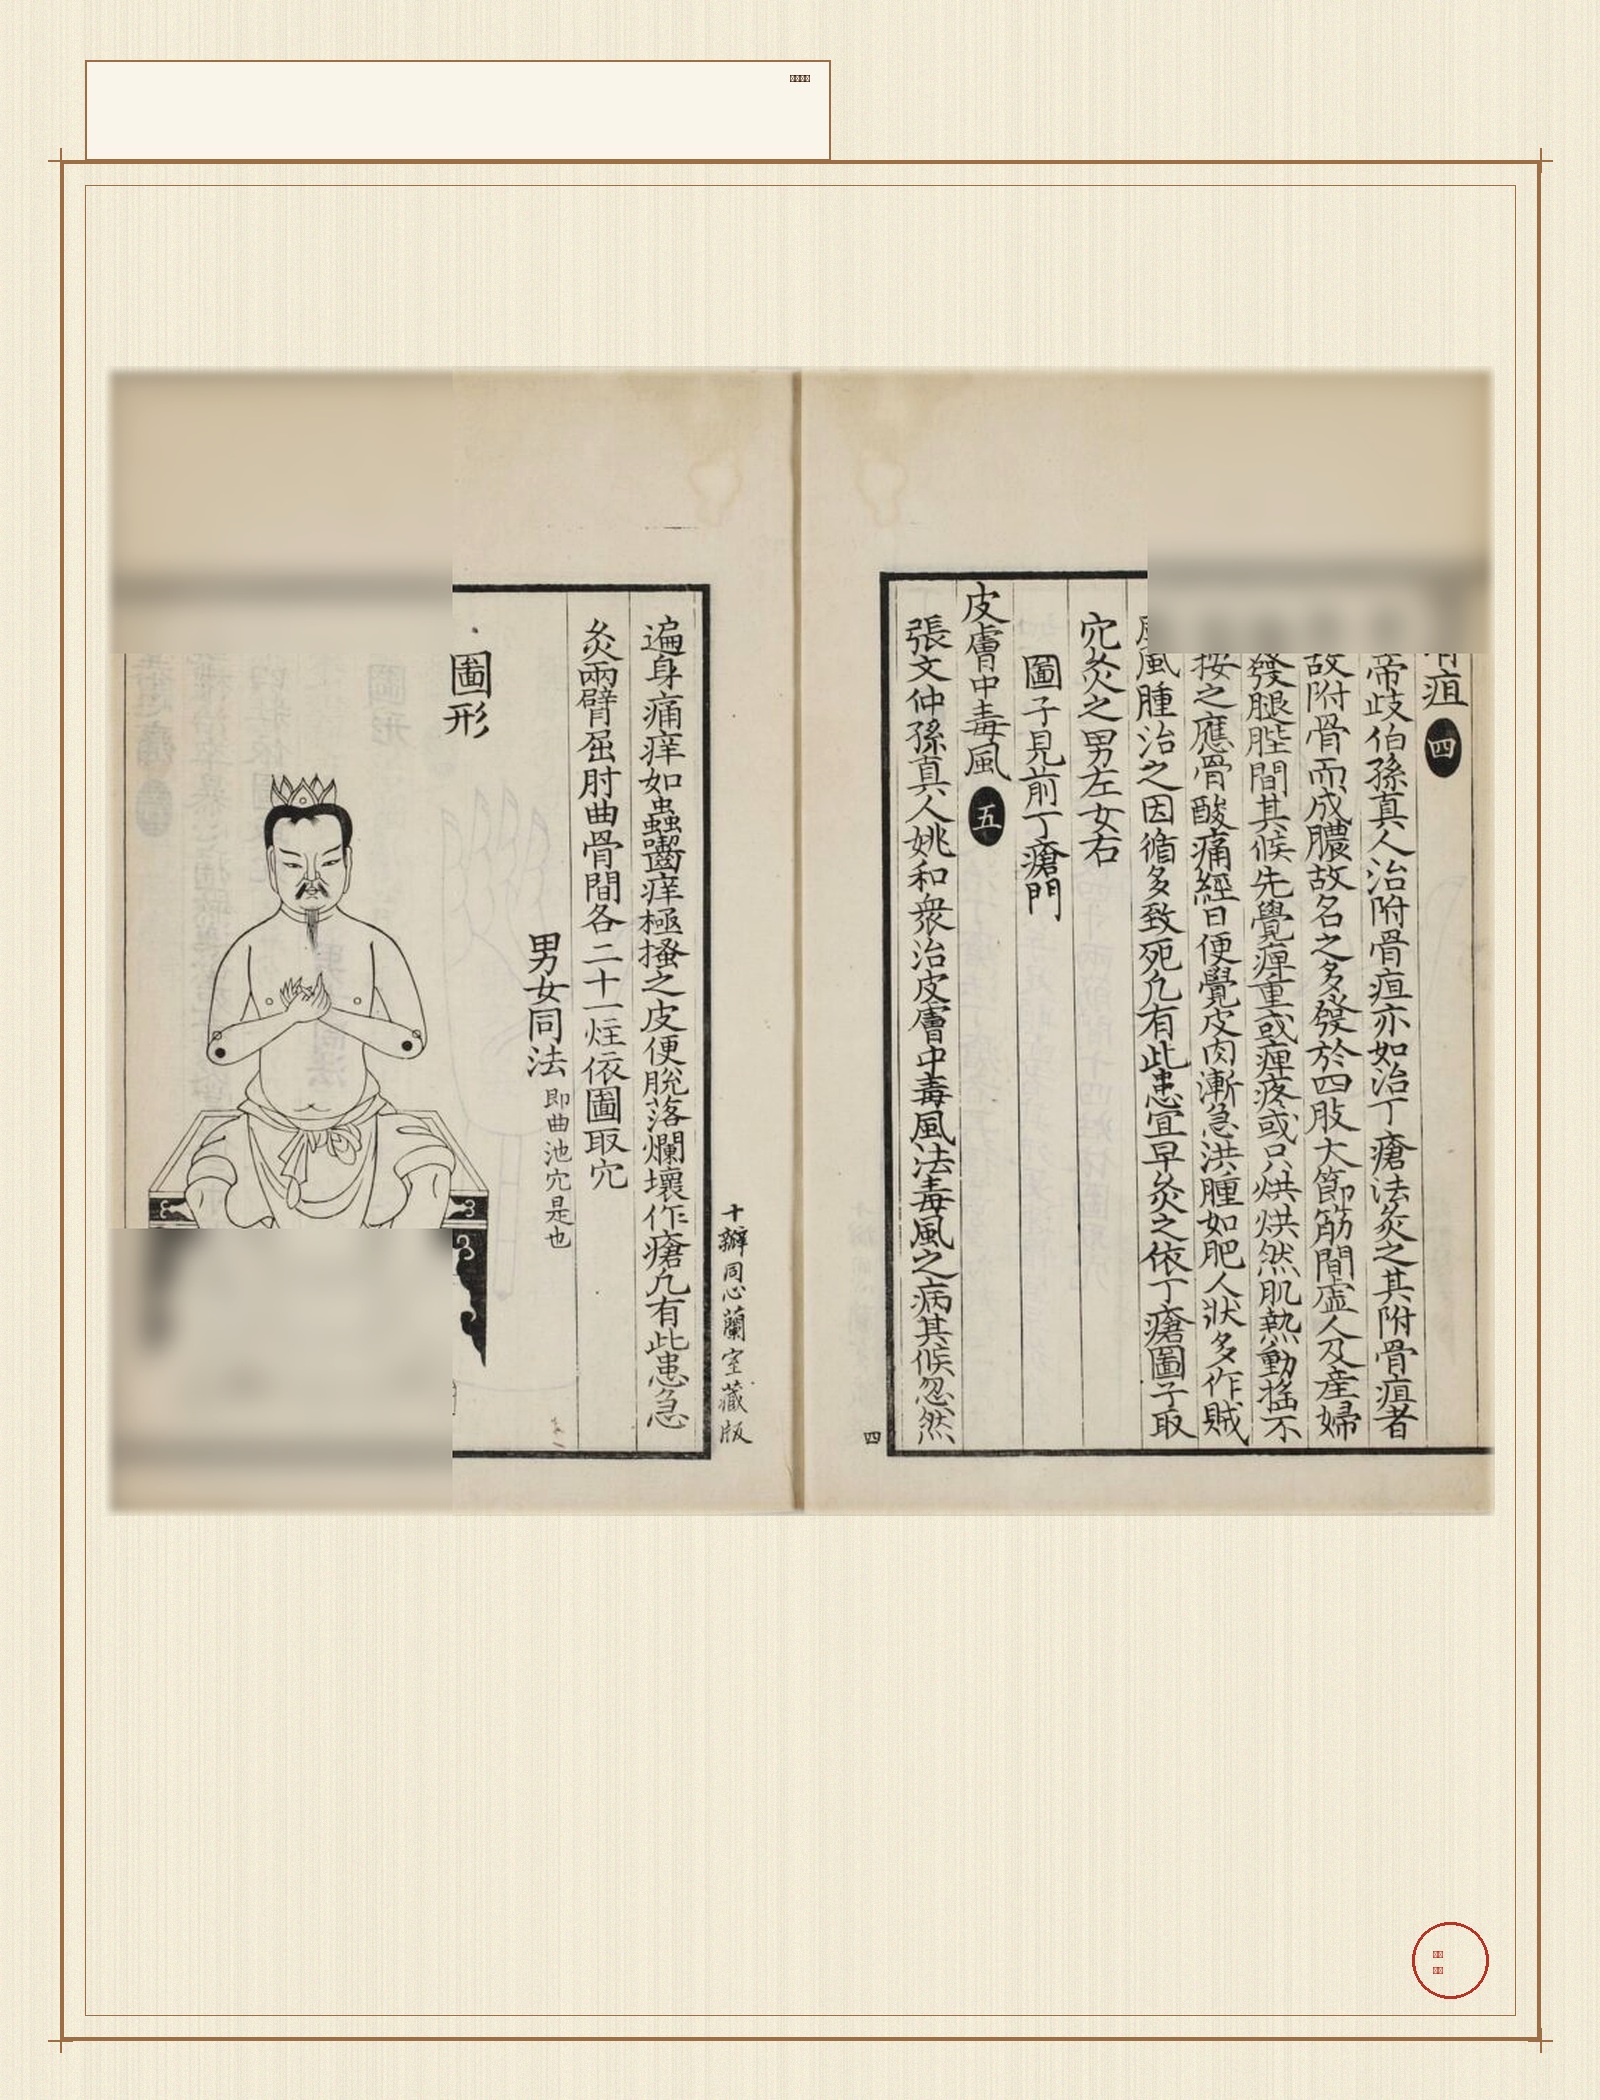 疽 四
帝歧伯孫真人治附骨疽亦如治丁瘡法灸之其附骨疽者
故附骨而成膿故名之多發於四肢大節筋間虛人及産婦
發腿胜間其候先覺痺重或痺疼或只烘烘然肌熱動搖不
按之應骨酸痛經日便覺皮肉漸急洪腫如肥人狀多作賊
風腫治之因循多致死凡有此患宜早灸之依丁瘡圖子取
穴灸之男左女右
圖子見前丁瘡門
皮膚中毒風 五
張文仲孫真人姚和衆治皮膚中毒風法毒風之病其候忽然
四
十瓣同心蘭室藏版
遍身痛痒如蟲齧痒極搔之皮便脫落爛壞作瘡凡有此患急
灸兩臂屈肘曲骨間各二十一炷依圖取穴
男女同法 即曲池穴是也
圖形